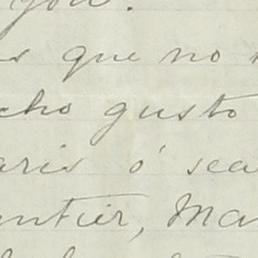 you.
que no
cho gusto
aris ó sea
ntier, Ma